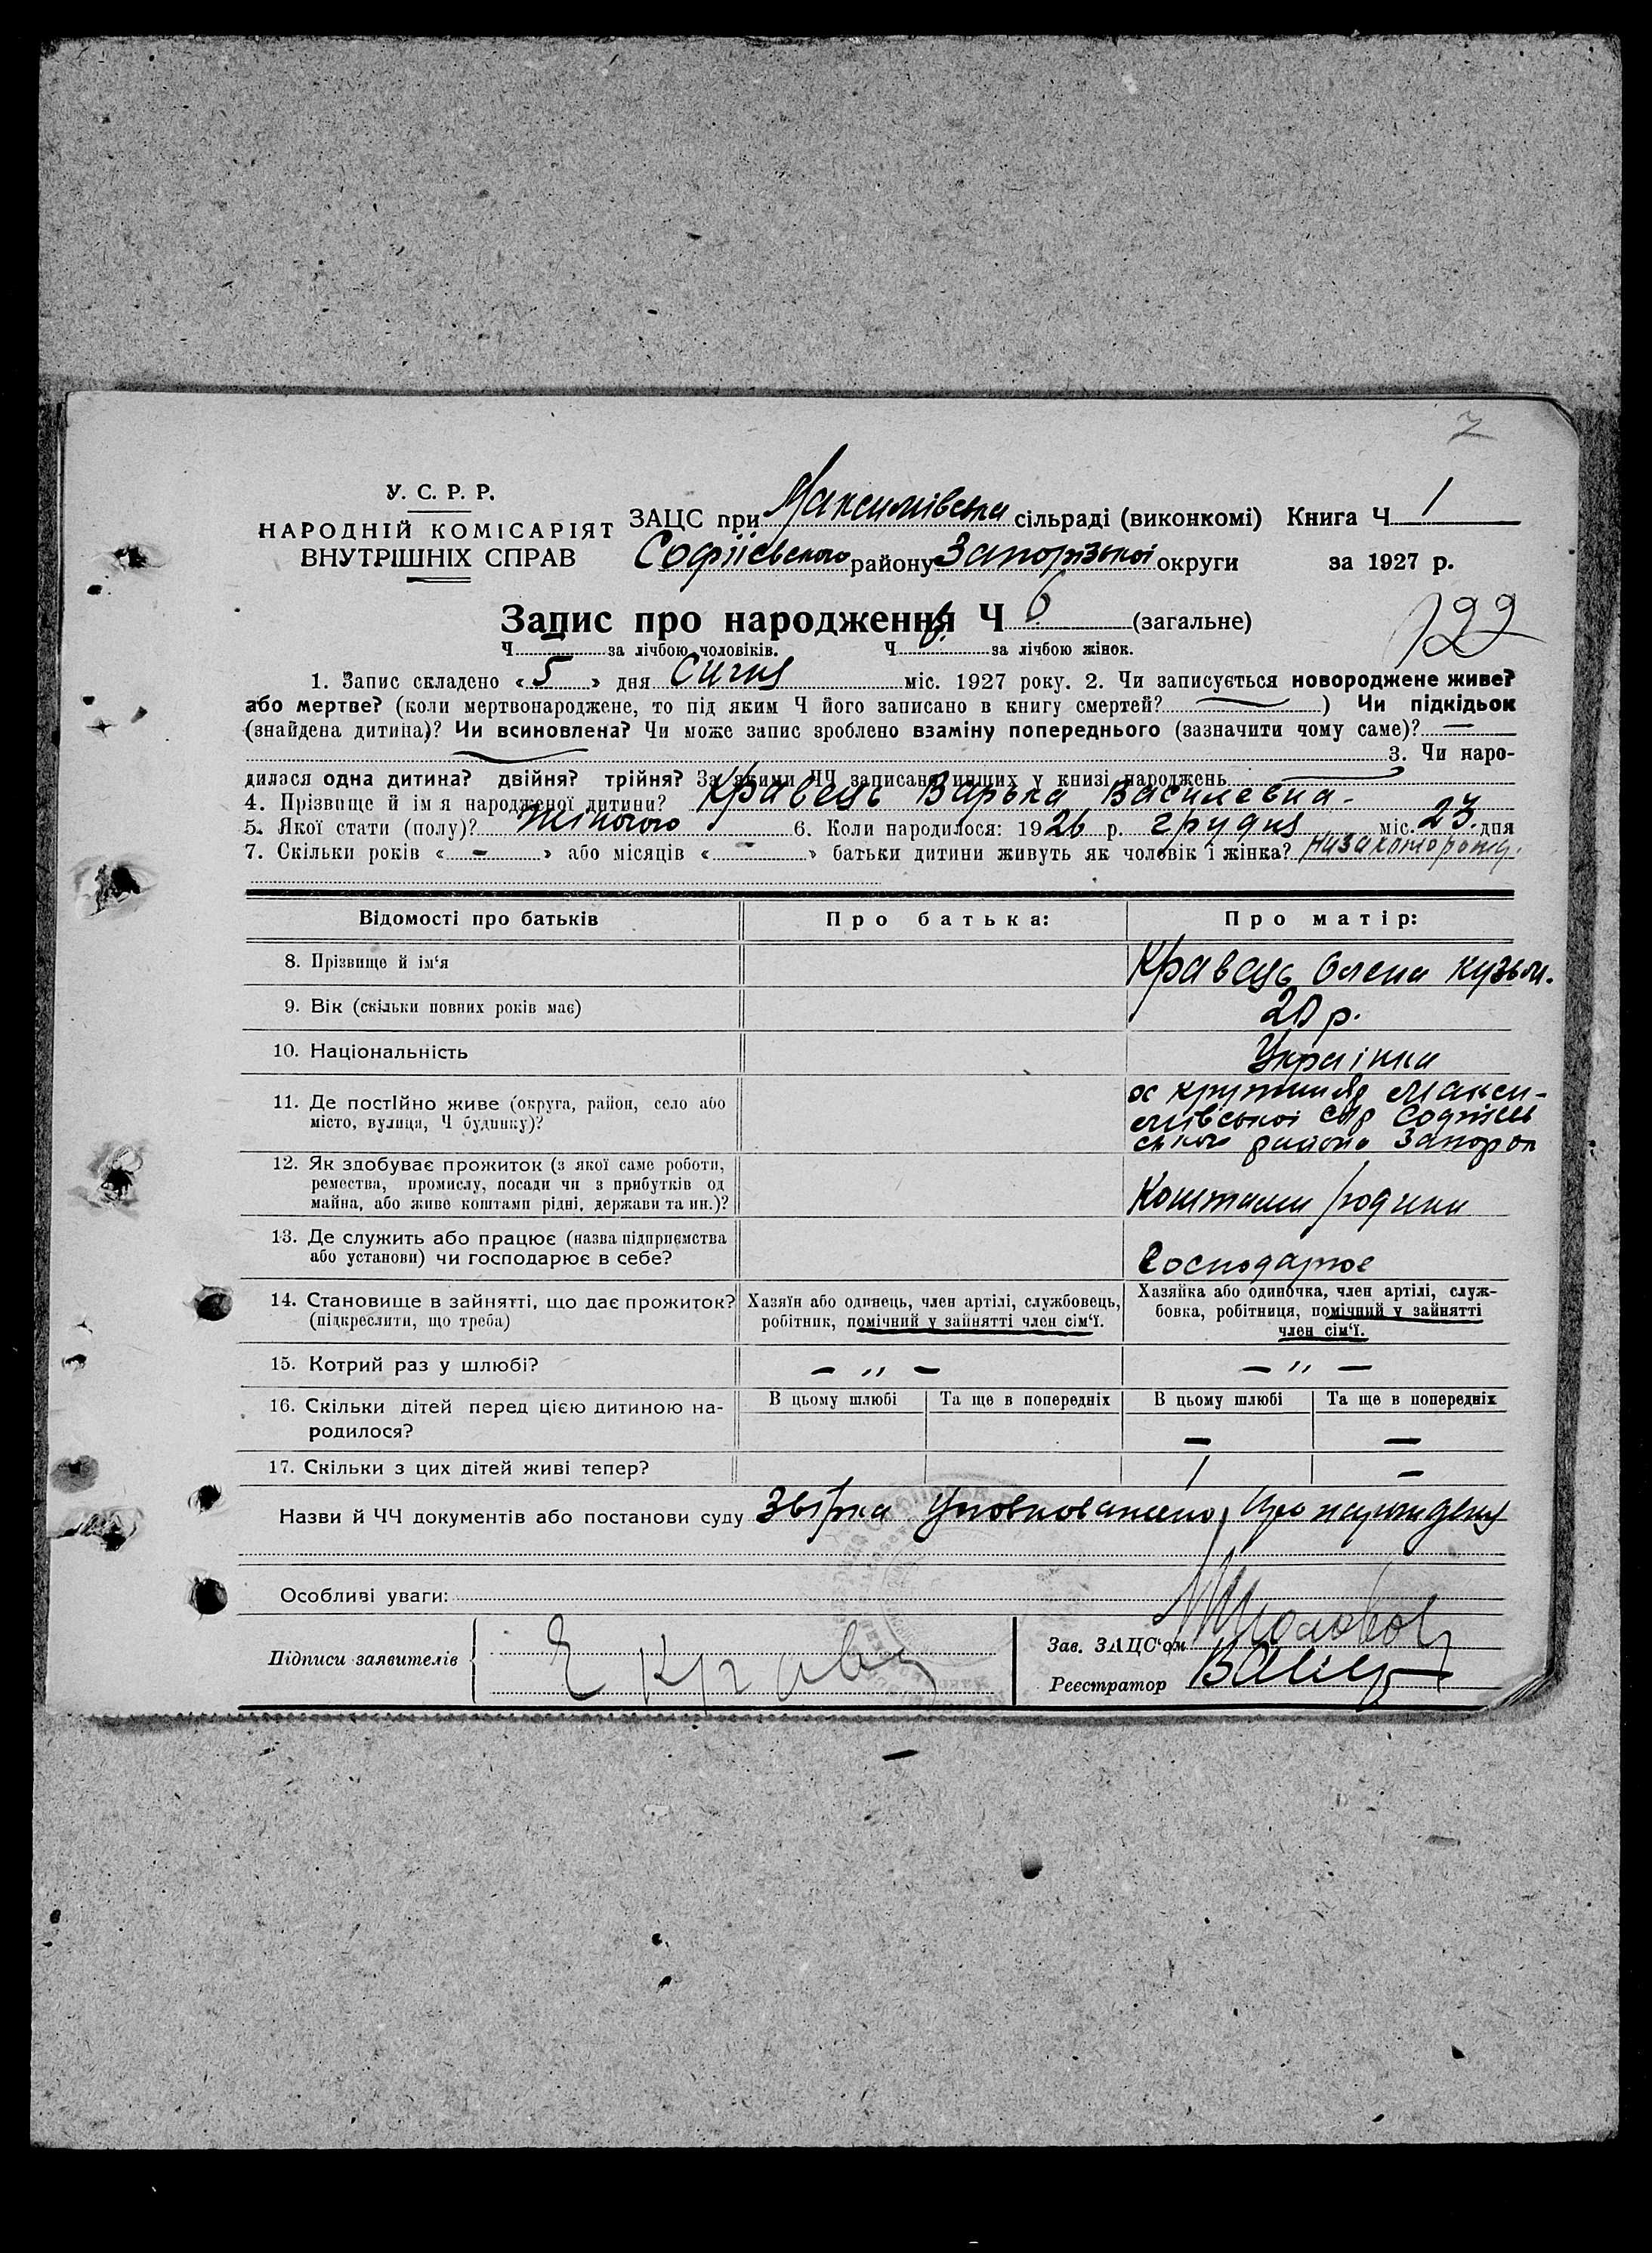 7
У. С. Р. Р.
НАРОДНІЙ КОМІСАРІЯТ
ВНУТРІШНІХ СПРАВ
ЗАЦС при Максимівська сільраді (виконкомі) Книга Ч 1
Софіївського району Запорізької округи за 1927 р.
Запис про народження Ч 6 (загальне)
122
Ч за лічбою чоловіків. Ч 6. за лічбою жінок.
1. Запис складено «5» дня Січня міс. 1927 року. 2. Чи записується новороджене живе?
або мертве? (коли мертвонароджене, то під яким Ч його записано в книгу смертей? ) Чи підкідьок
(знайдена дитина)? Чи всиновлена? Чи може запис зроблено взаміну попереднього (зазначити чому саме)? —
3. Чи наро-
дилася одна дитина? двійня? трійня? За якими ЧЧ записано инших у книзі народжень
4. Прізвище й ім я народженої дитини? Кравець Варька Василевна -
5. Якої стати (полу)? Жіночого 6. Коли народилося: 1926 р. грудня міс. 23. дня
7. Скільки років « - » або місяців « - » батьки дитини живуть як чоловік і жінка?
Відомості про батьків Про батька: Про матір:
8. Прізвище й ім'я Кравець Олена Кузьм.
9. Вік (скільки повних років має) 20 р.
10. Національність Українка
11. Де постійно живе (округа, район, село або
місто, вулиця, Ч будинку)?
х Макси-
мівської С/р Софіїв
ського района Запорож
12. Як здобуває прожиток (з якої саме роботи,
ремества, промислу, посади чи з прибутків од
майна, або живе коштами рідні, держави та ин.)?
Коштами родини
13. Де служить або працює (назва підприємства
або установи) чи господарює в себе?
Господарює
14. Становище в зайнятті, що дає прожиток?
(підкреслити, що треба)
Хазяїн або одинець, член артілі, службовець,
робітник, помічний у зайнятті член сім'ї.
Хазяйка або одиночка, член артілі, служ-
бовка, робітниця, помічний у зайнятті
член сім'ї.
15. Котрий раз у шлюбі? — " — — " —
16. Скільки дітей перед цією дитиною на-
родилося?
В цьому шлюбі Та ще в попередніх В цьому шлюбі Та ще в попередніх
— —
17. Скільки з цих дітей живі тепер? 1 —
Назви й ЧЧ документів або постанови суду Звірка Уповноважено Про
Особливі уваги:
Підписи заявителів Е Кравец
Зав. ЗАЦС'ом
Реєстратор